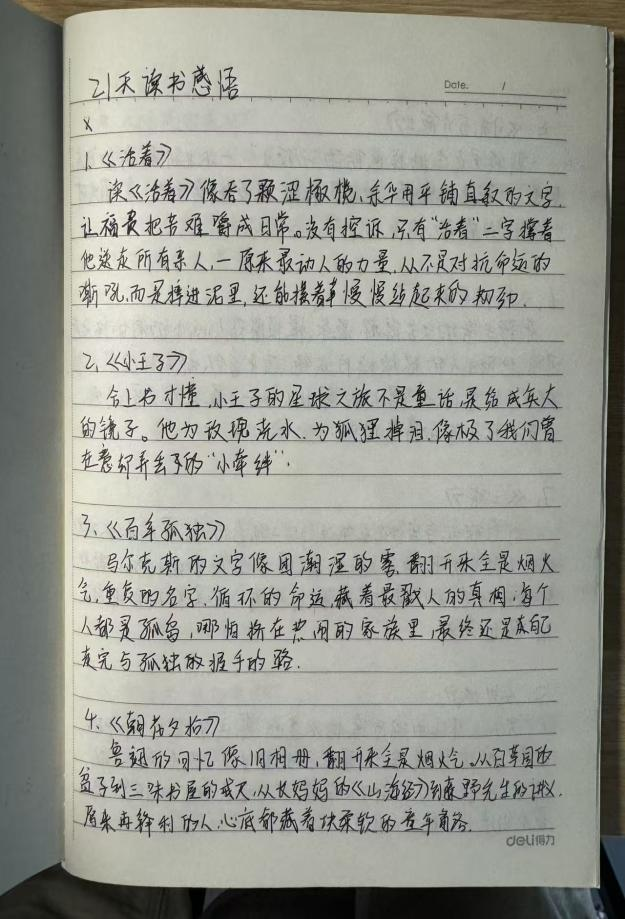 21天读书感悟
Date. /
x
1、《活着》
读《活着》像吞了颗涩橄榄，余华用平铺直叙的文字，
让福贵把苦难嚼成日常。没有控诉，只有“活着”二字撑着
他送走所有亲人，一原来最动人的力量，从不是对抗命运的
嘶吼，而是摔进泥里，还能摸着草慢慢站起来的韧劲.
2、《小王子》
合上书才懂，小王子的星球之旅不是童话，是给成年人
的镜子。他为玫瑰浇水，为狐狸掉泪，像极了我们曾
在意却弄丢了的“小牵绊”.
3、《百年孤独》
马尔克斯的文字像团潮湿的雾，翻开来全是烟火
气，重复的名字，循环的命运，藏着最戳人的真相：每个
人都是孤岛，哪怕挤在热闹的家族里，最终还是在自己
走完与孤独的握手的路.
4、《朝花夕拾》
鲁迅的回忆像旧相册，翻开来全是烟火气。从百草园的
到三味书屋的戒尺，从长妈妈的《山海经》到藤野先生的讲义，
原来再锋利的人，心底都藏着块柔软的童年角落.
deli得力